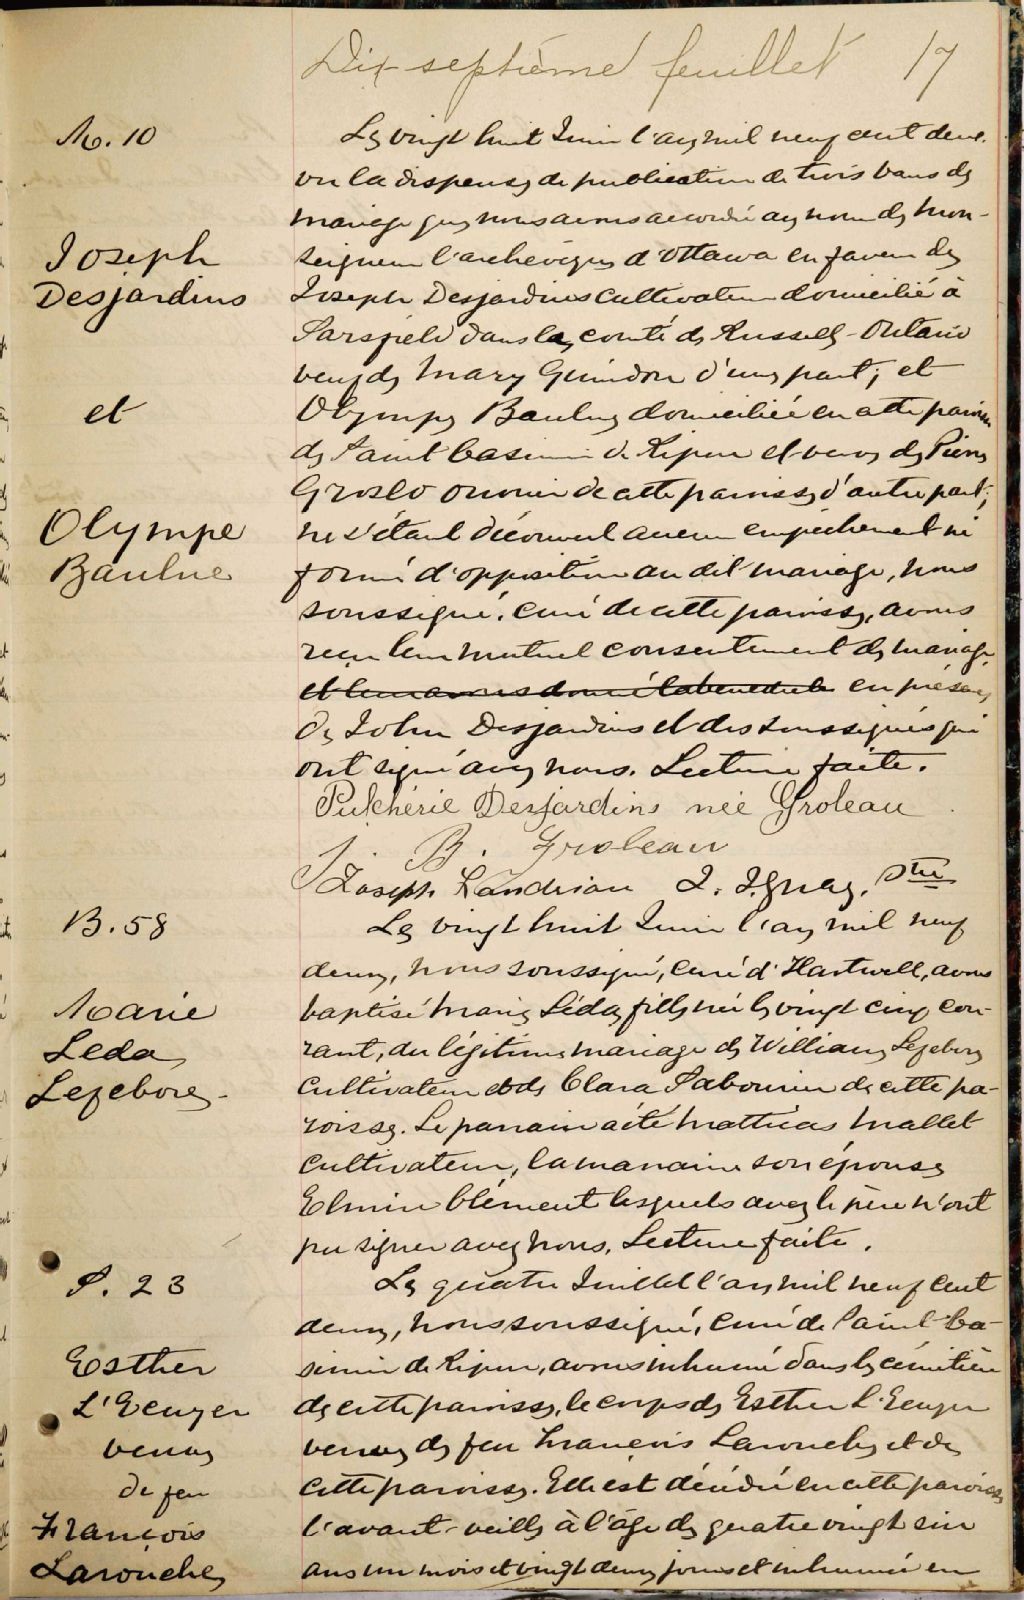 Dix-septième feuillet 17
M. 10
Joseph
Desjardins
et
Olympe
Baulne
Le vingt huit Juin l'an mil neuf cent deux,
vu la dispense de publication de trois bans de
mariage que nous avons accordée au nom de Mon-
seigneur l'archevêque d'Ottawa en faveur de
Joseph Desjardins cultivateur domicilié à
Sarsfield dans le comté de Russell-Ontario
veuf de Mary Guindon d'une part; et
Olympe Baulne domiciliée en cette paroisse
de Saint Casimir de Ripon et veuve de Pierre
Groslo ouvrier de cette paroisse d'autre part;
ne s'étant découvert aucun empêchement ni
formé d'opposition au dit mariage, nous
soussigné, curé de cette paroisse, avons
reçu leur mutuel consentement de mariage
et leur avons donné la bénédicti en présence
de John Desjardins et des soussignés qui
ont signé avec nous. Lecture faite.
Pulchérie Desjardins née Groleau
J. B. Groleau
Joseph Landriau J. Ptre
B. 58
Marie
Leda
Lefebvre
Le vingt huit Juin l'an mil neuf
deux, nous soussigné, curé d'Hartwell, avons
baptisé Marie Léda, fille née le vingt cinq cou-
rant, du légitime mariage de William Lefebvre
cultivateur et de Clara Sabourin de cette pa-
roisse. Le parrain a été Matthias Mallet
cultivateur, la marraine son épouse
Elmire Clément lesquels avec le père n'ont
pu signer avec nous. Lecture faite.
S. 23
Esther
L'Ecuyer
veuve
de feu
François
Larouche
Le quatre Juillet l'an mil neuf cent
deux, nous soussigné, curé de Saint-Ca-
simir de Ripon, avons inhumé dans le cimetière
de cette paroisse, le corps de Esther L'Ecuyer
veuve de feu Francois Larouche et de
cette paroisse. Elle est décédée en cette paroisse
l'avant-veille à l'âge de quatre vingt six
ans un mois et vingt deux jours et inhumée en